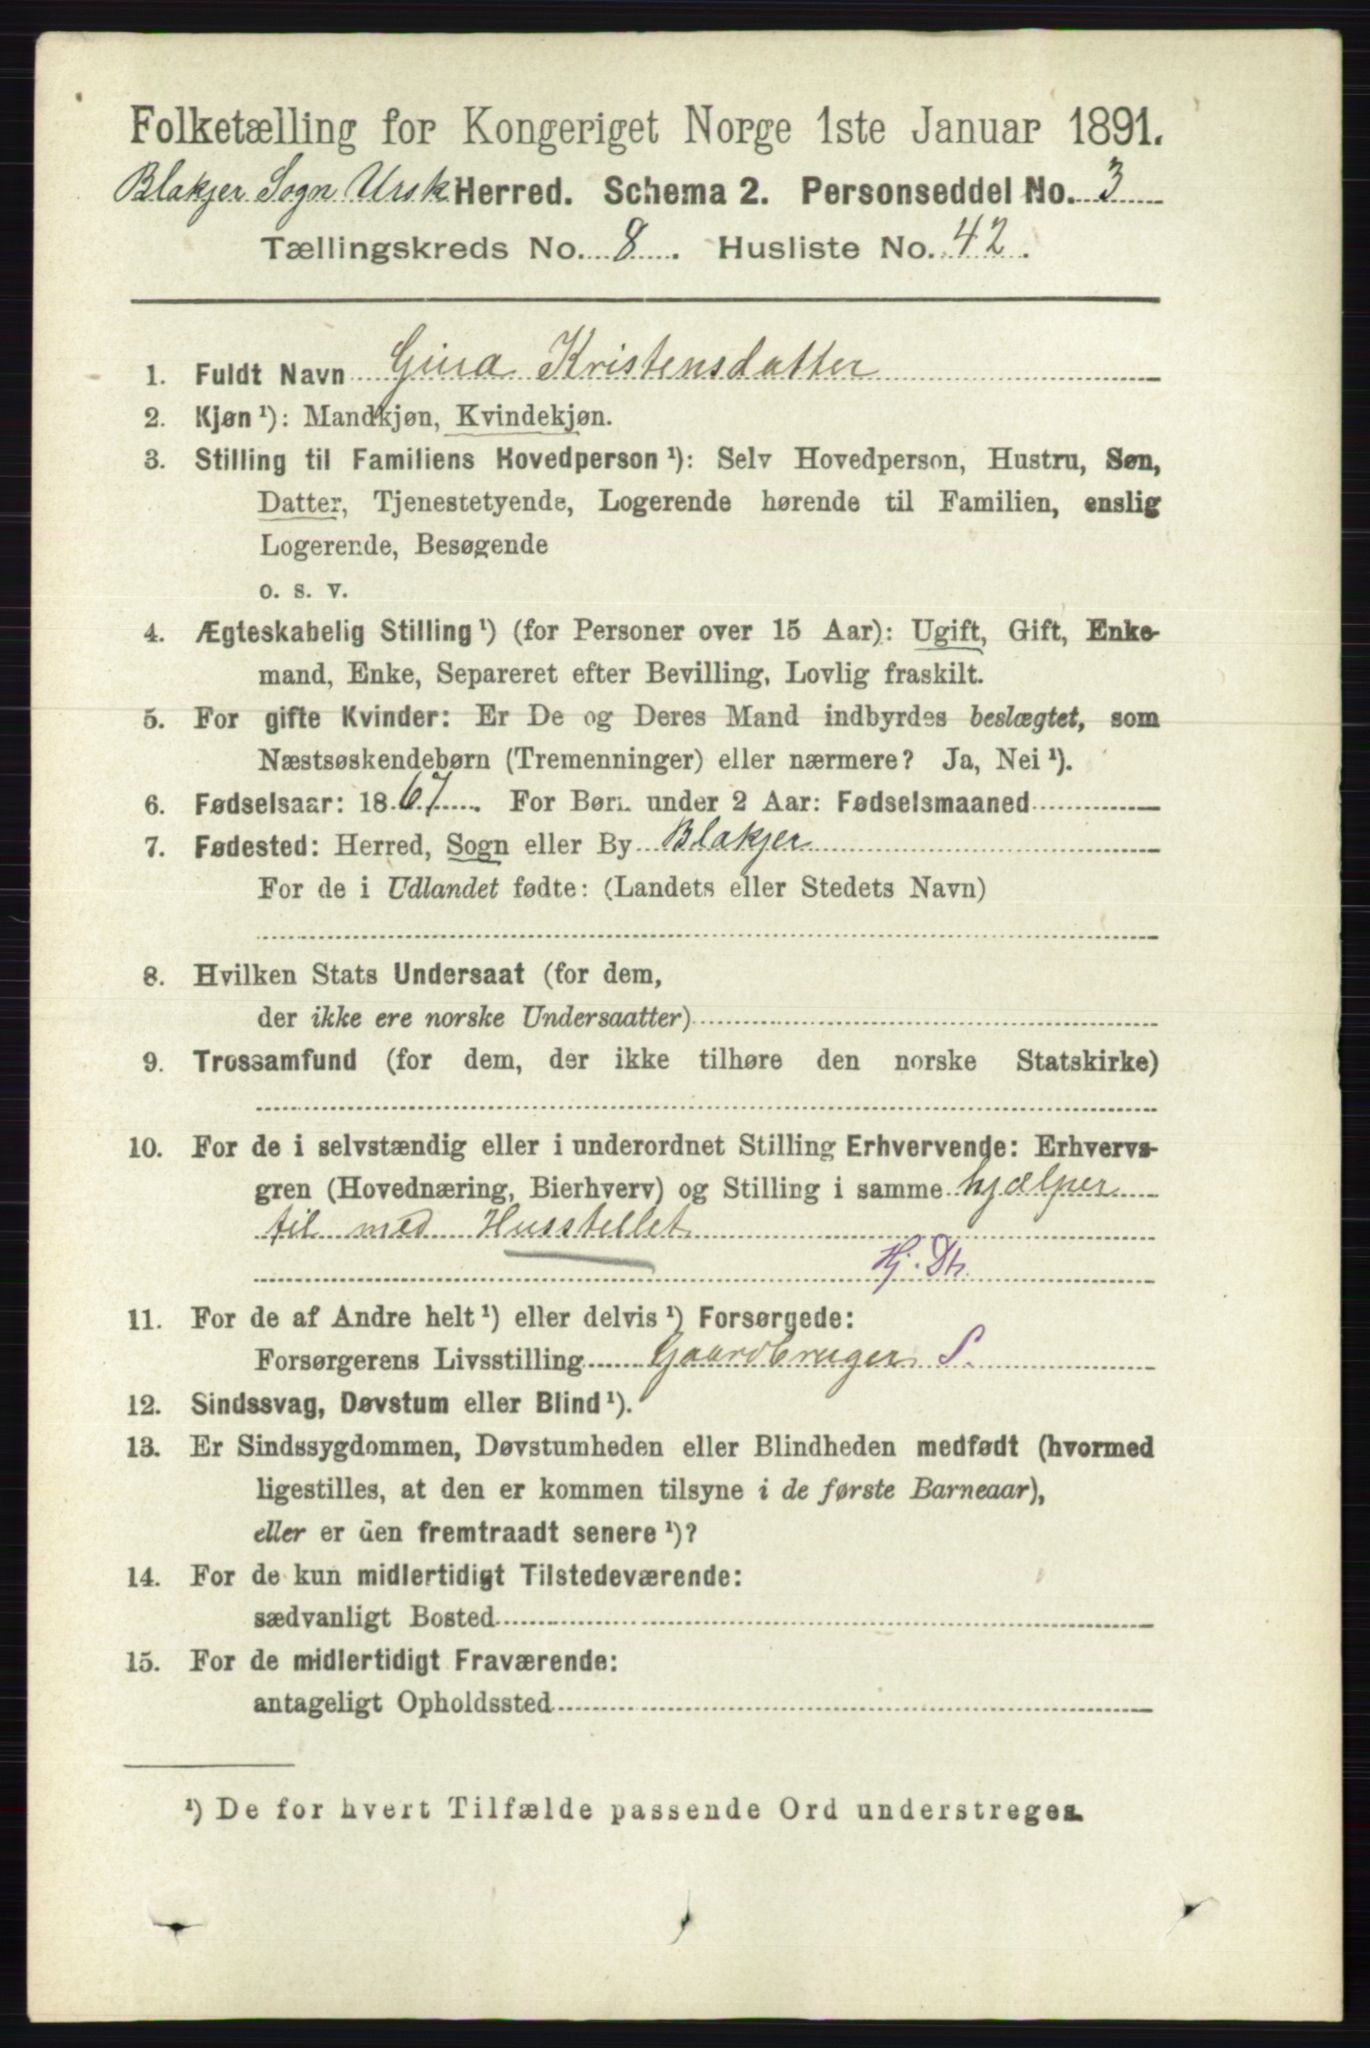 Folketælling for Kongeriget Norge 1ste Januar 1891.
Blakjer Sogn Ursk Herred. Schema 2. Personseddel No. 3
Tællingskreds No. 8. Husliste No. 42.
1. Fuldt Navn Gina Kristensdatter
2. Kjøn¹): Mandkjøn, Kvindekjøn.
3. Stilling til Familiens Hovedperson¹): Selv Hovedperson, Hustru, Søn,
Datter, Tjenestetyende, Logerende hørende til Familien, enslig
Logerende, Besøgende
o. s. v.
4. Ægteskabelig Stilling¹) (for Personer over 15 Aar): Ugift, Gift, Enke-
mand, Enke, Separeret efter Bevilling, Lovlig fraskilt.
5. For gifte Kvinder: Er De og Deres Mand indbyrdes beslægtet, som
Næstsøskendebørn (Tremenninger) eller nærmere? Ja, Nei¹).
6. Fødselsaar: 1867. For Børn under 2 Aar: Fødselsmaaned
7. Fødested: Herred, Sogn eller By Blakjer
For de i Udlandet fødte: (Landets eller Stedets Navn)
8. Hvilken Stats Undersaat (for dem,
der ikke ere norske Undersaatter)
9. Trossamfund (for dem, der ikke tilhøre den norske Statskirke)
10. For de i selvstændig eller i underordnet Stilling Erhvervende: Erhvervs-
gren (Hovednæring, Bierhverv) og Stilling i samme hjælper
til med Husstellet
Hj. Dtr.
11. For de af Andre helt¹) eller delvis¹) Forsørgede:
Forsørgerens Livsstilling Gaardbruger S.
12. Sindssvag, Døvstum eller Blind¹).
13. Er Sindssygdommen, Døvstumheden eller Blindheden medfødt (hvormed
ligestilles, at den er kommen tilsyne i de første Barneaar),
eller er den fremtraadt senere¹)?
14. For de kun midlertidigt Tilstedeværende:
sædvanligt Bosted
15. For de midlertidigt Fraværende:
antageligt Opholdssted
¹) De for hvert Tilfælde passende Ord understreges.